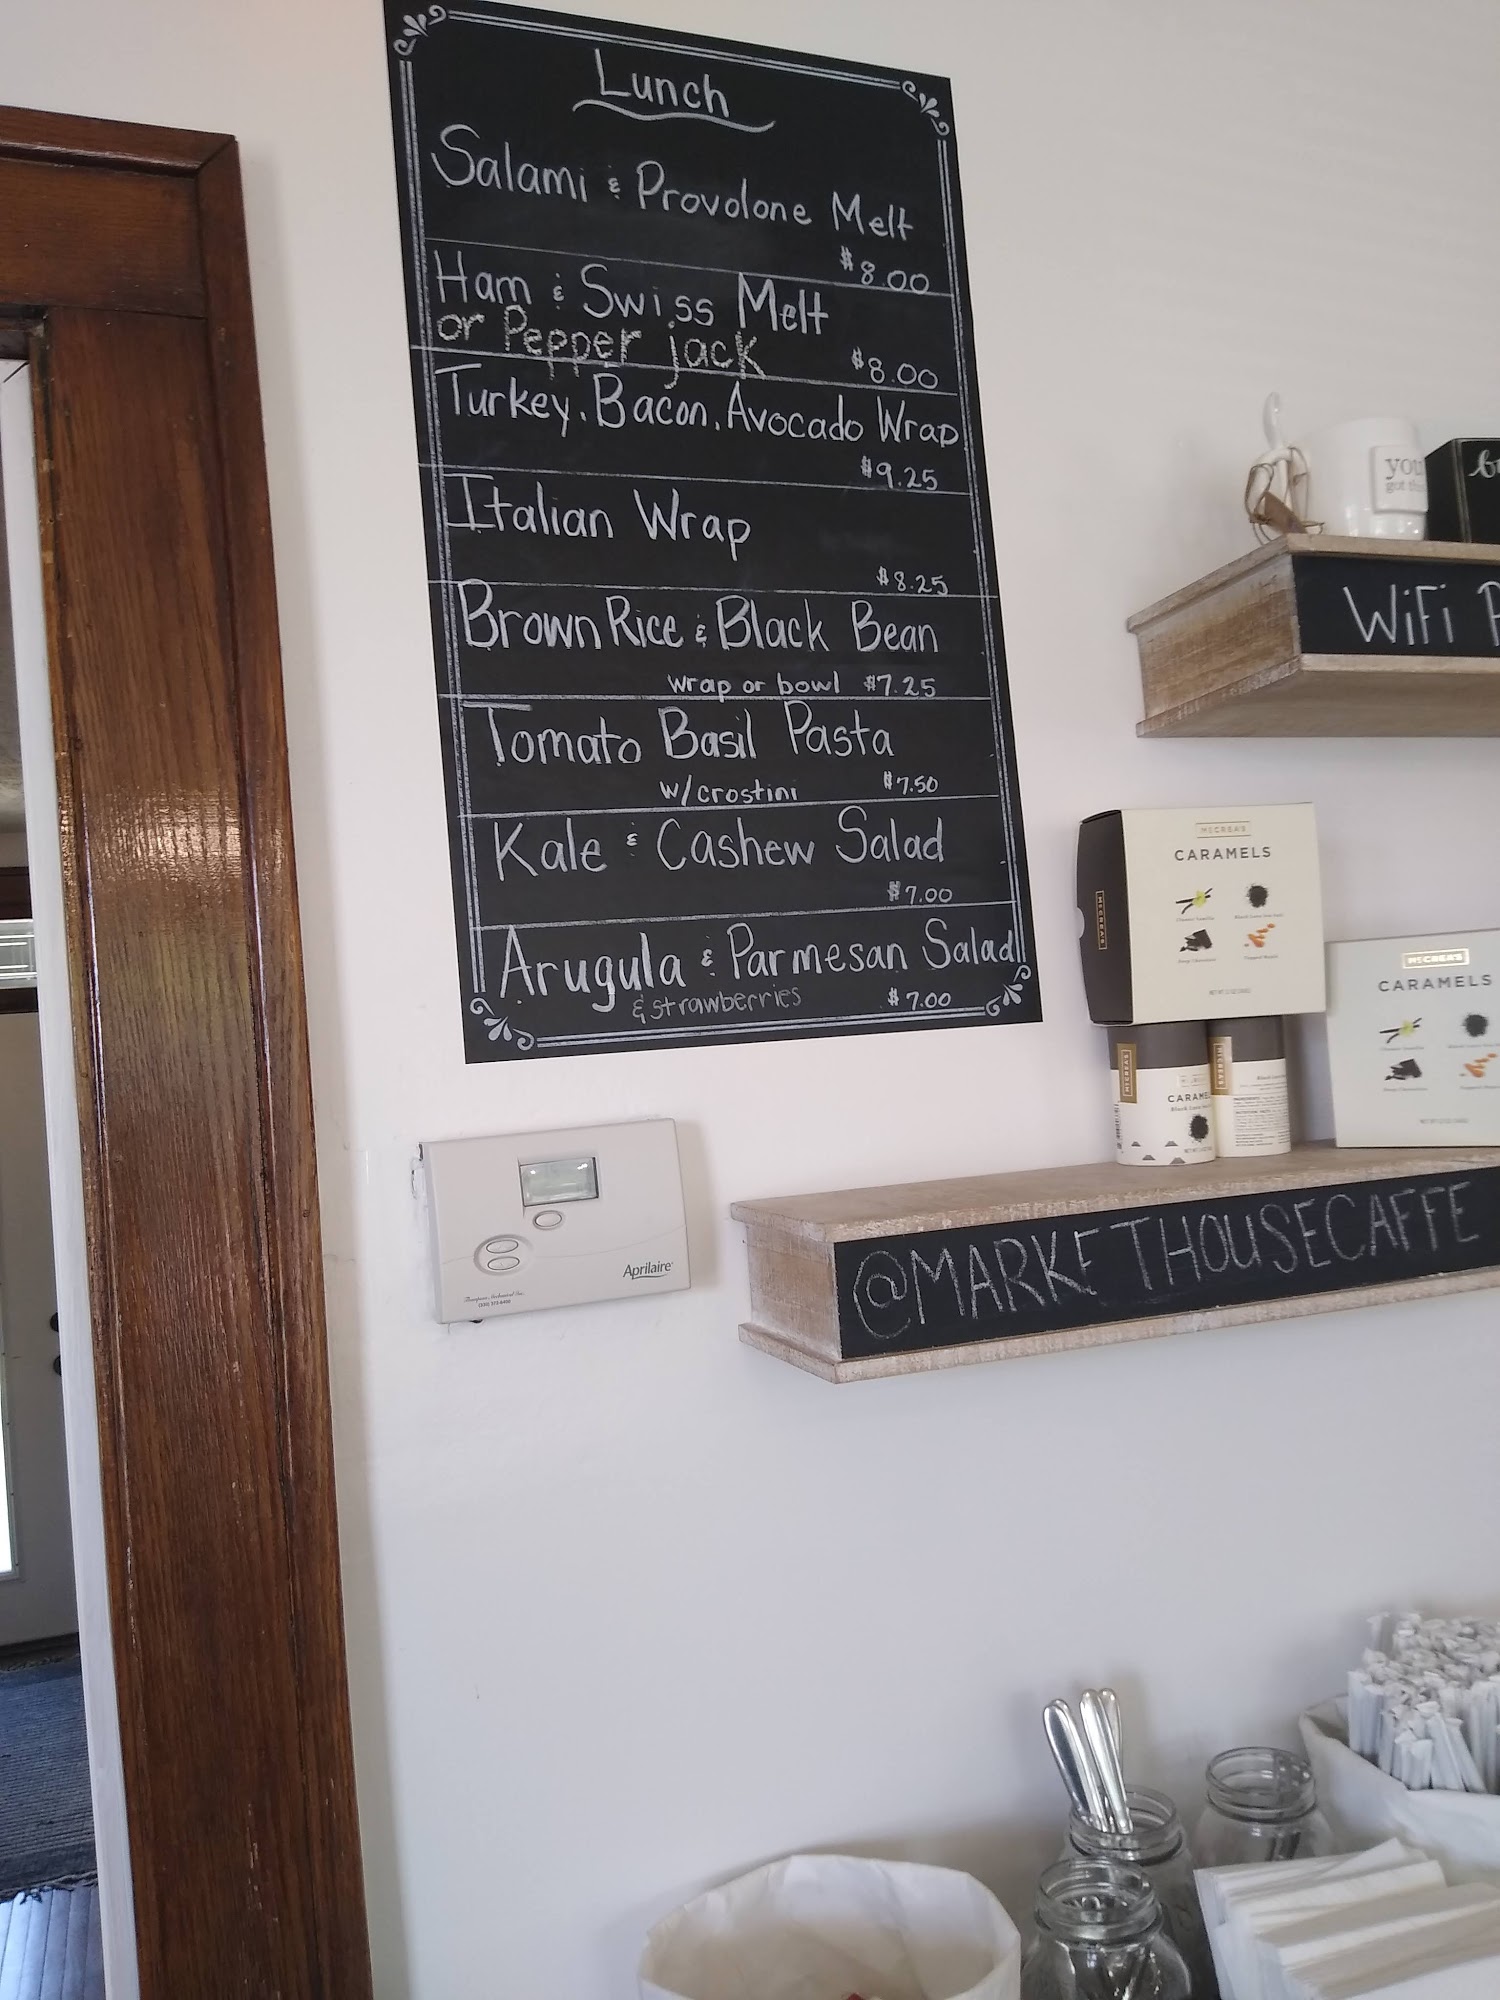 Lunch
Salami & Provolone Melt
$8.00
Ham & Swiss Melt
or Pepper jack $8.00
Turkey, Bacon, Avocado Wrap
$9.25
Italian Wrap
$8.25
Brown Rice & Black Bean
wrap or bowl $7.25
Tomato Basil Pasta
w/crostini $7.50
Kale & Cashew Salad
$7.00
Arugula & Parmesan Salad
& strawberries $7.00
you
got
WiFi
McCREA'S
CARAMELS
McCREA'S
McCREA'S
CARAMELS
McCREA'S
CARAMEL
McCREA'S
@MARKETHOUSECAFFE
Aprilaire